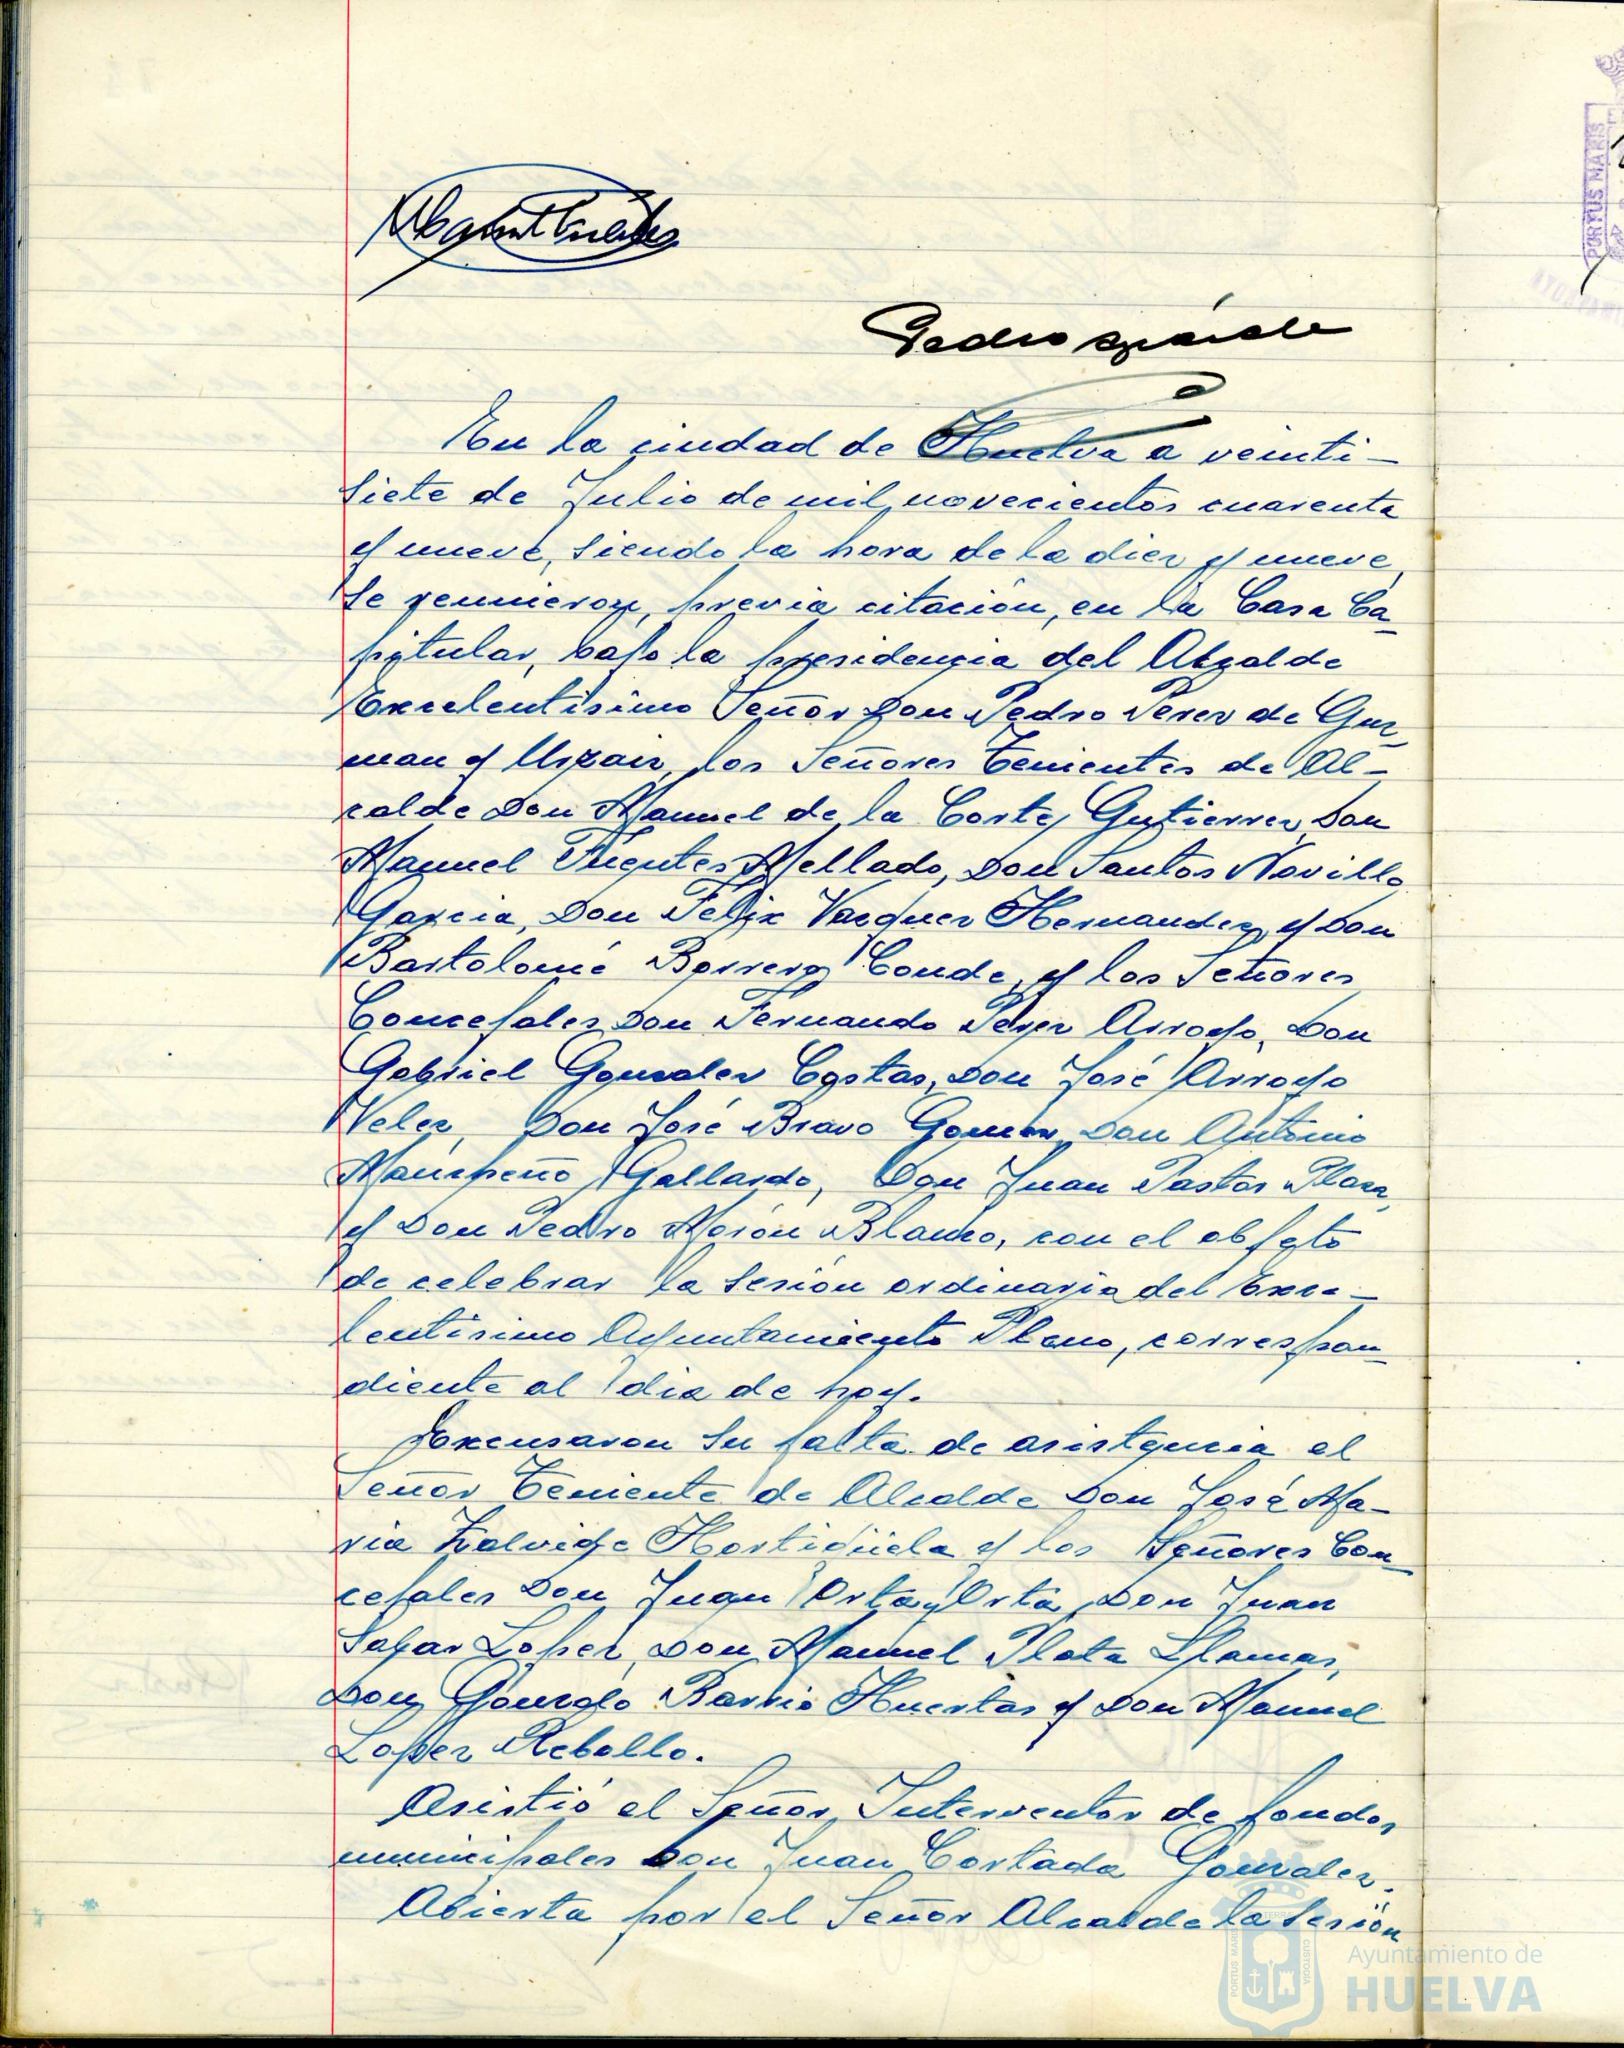 En la ciudad de Huelva a veinti-
siete de Julio de mil novecientos cuarenta
y nueve, siendo la hora de la diez y nueve,
se reunieron, previa citación, en la Casa Ca-
pitular, bajo la presidencia del Alcalde
Excelentisimo Señor Don Pedro Perez de Guz-
man y Urzaiz, los Señores Tenientes de Al-
calde Don Manuel de la Corte Gutierrez, Don
Manuel Fuentes Mellado, Don Santos Novillo
Garcia, Don Felix Vazquez Hernandez y Don
Bartolomé Borrero Conde, y los Señores
Concejales Don Fernando Perez Arroyo, Don
Gabriel Gonzalez Costas, Don José Arroyo
Velez, Don José Bravo Gomez, Don Antonio
Marchena Gallardo, Don Juan Pastor Plaza,
y Don Pedro Morón Blanco, con el objeto
de celebrar la sesión ordinaria del Exce-
lentisimo Ayuntamiento Pleno, correspon-
diente al dia de hoy.
Excusaron su falta de asistencia el
Señor Teniente de Alcalde Don José Ma-
ria Zalvide Hortigüela y los Señores Con-
cejales Don Juan Orta y Orta, Don Juan
Lopez, Don Manuel Plata Llamas,
Don Gonzalo Barrio Huertas y Don Manuel
Lopez Rebollo.
Asistió el Señor Interventor de fondos
municipales Don Juan Cortada Gonzalez.
Abierta por el Señor Alcalde la sesión
PORTUS MARIS
Ayuntamiento de
HUELVA